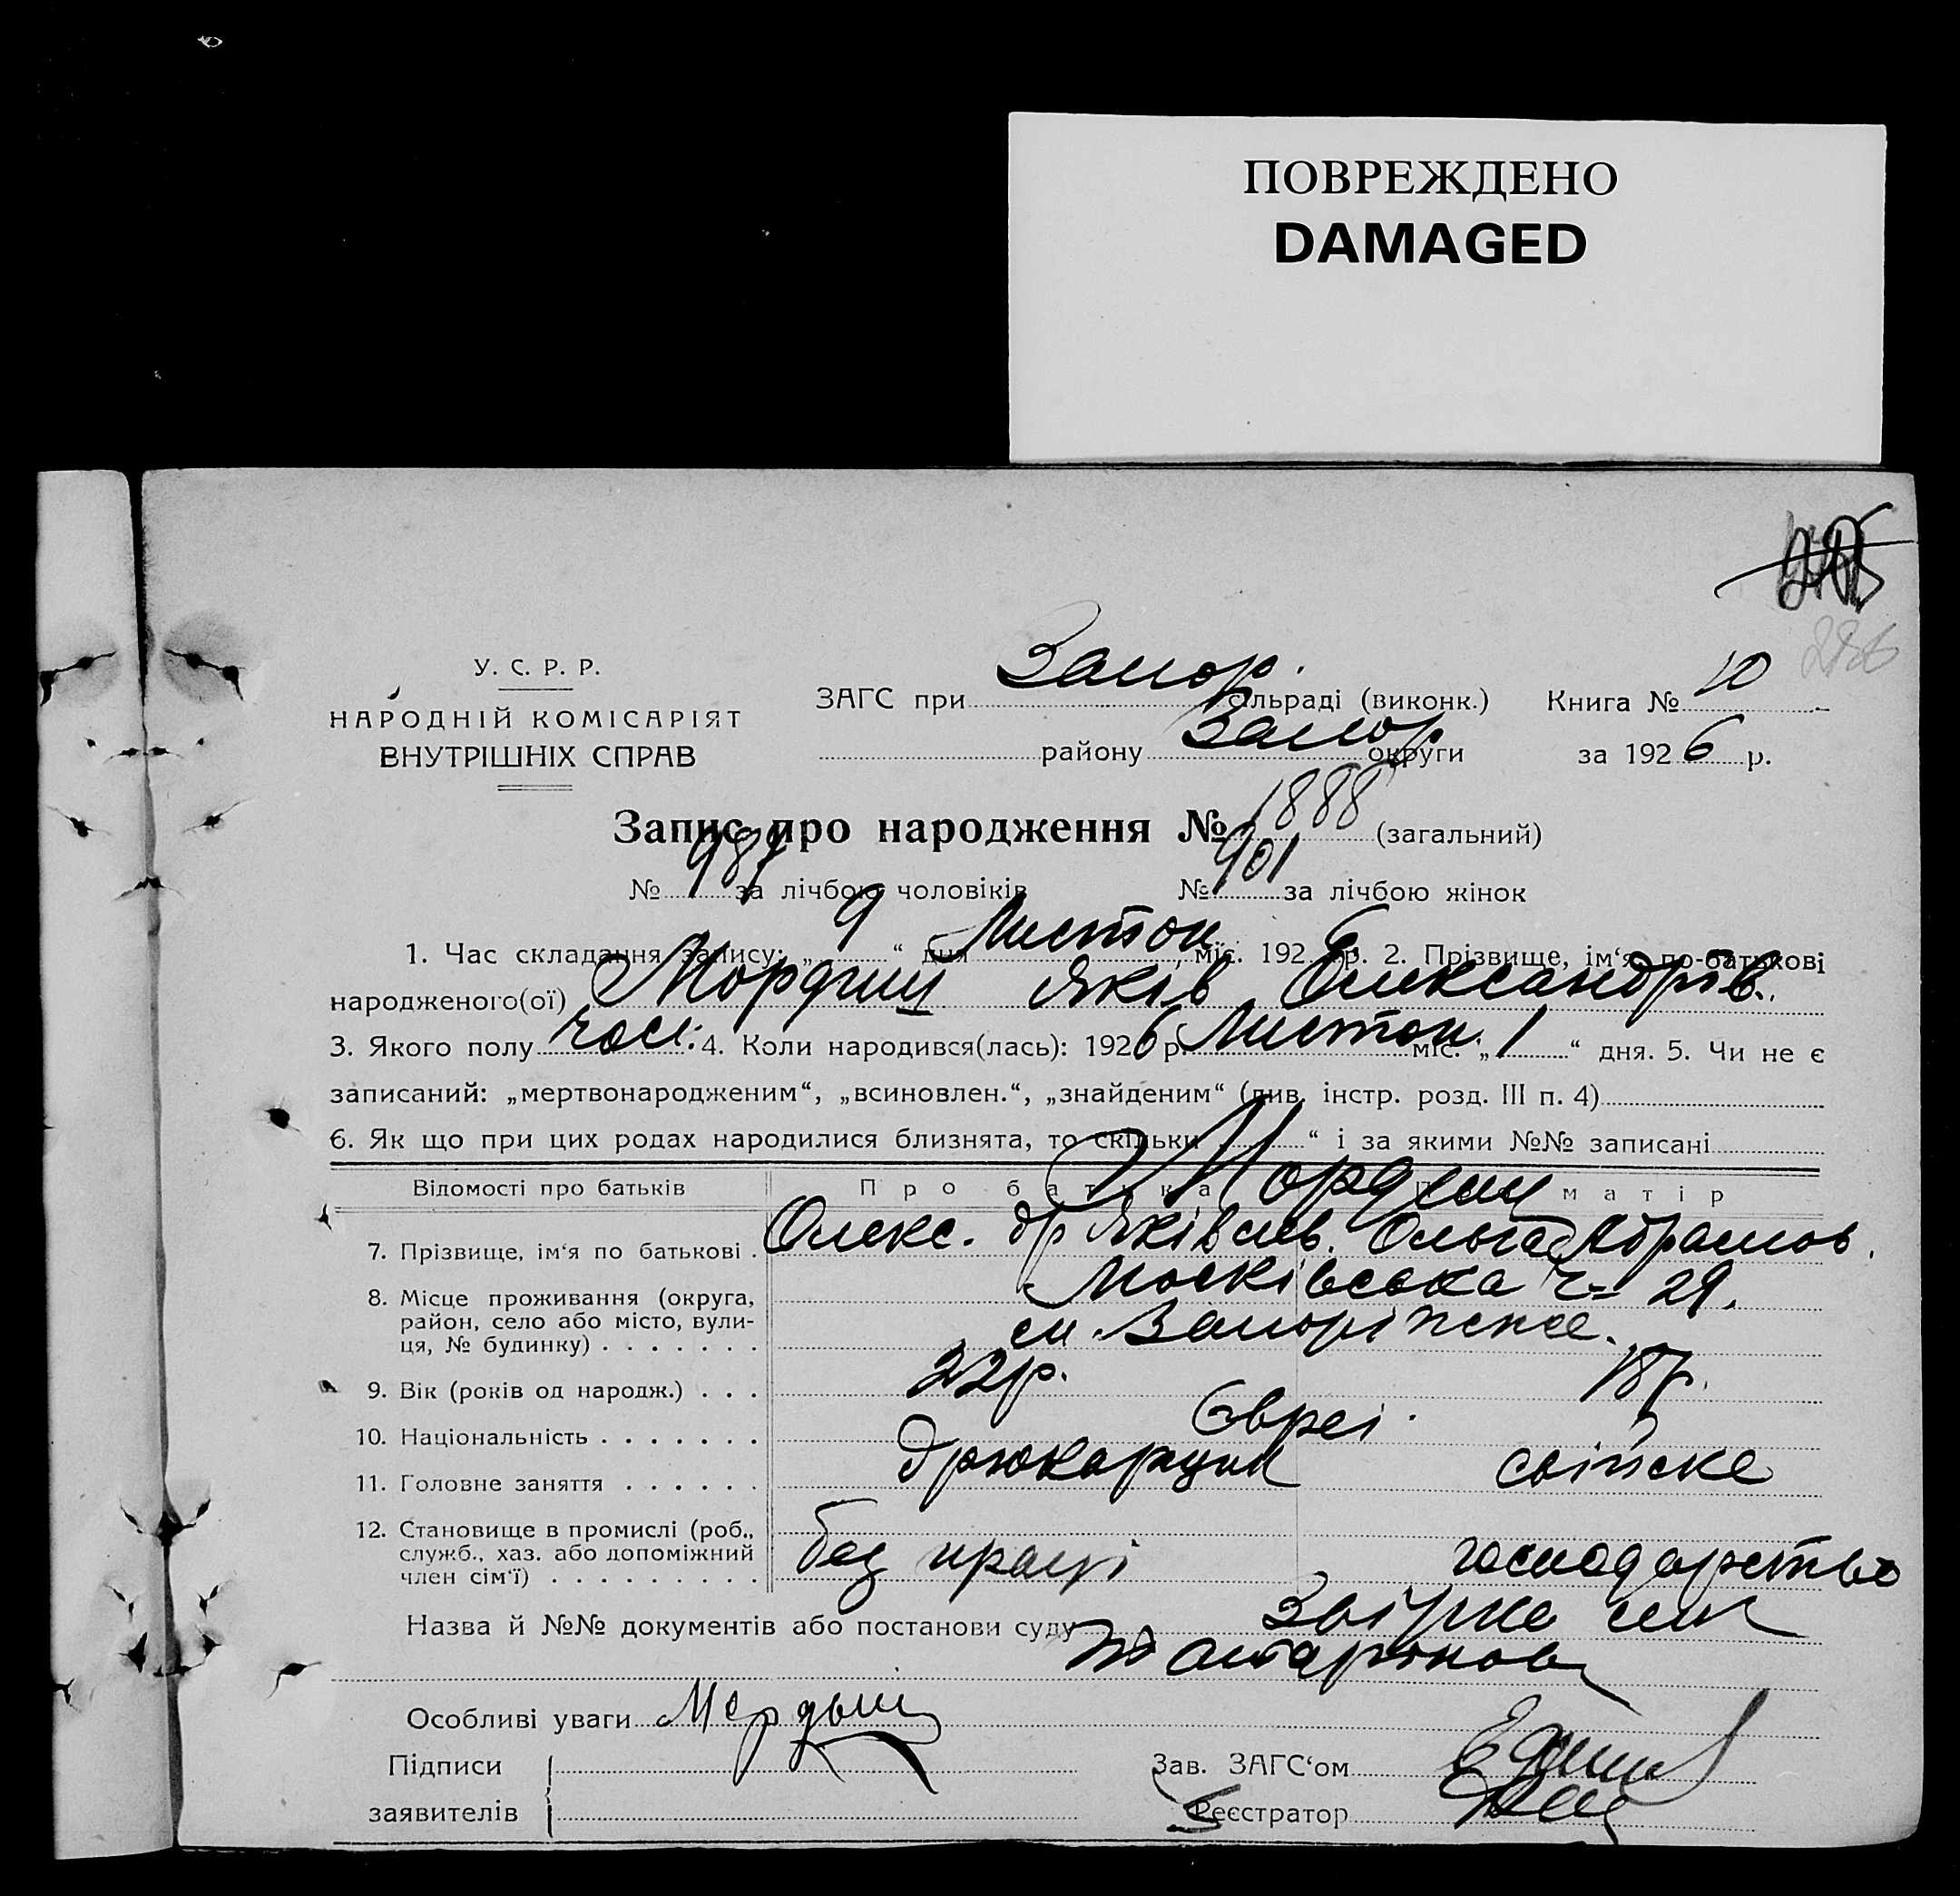 ПОВРЕЖДЕНО
DAMAGED
У. С. Р. Р.
НАРОДНІЙ КОМІСАРІЯТ
ВНУТРІШНІХ СПРАВ
ЗАГС при Запор. сільраді (виконк.) Книга № 10
району Запор округи за 1926 р.
Запис про народження № 1888 (загальний)
№ 987 за лічбою чоловіків № 901 за лічбою жінок
1. Час складання запису: „ 9 “ дня Листоп. міс. 1926 р. 2. Прізвище, ім‘я, по-батькові
народженого(ої) Мордиш Яків Олександрів.
3. Якого полу чол. 4. Коли народився(лась): 1926 р. Листоп. міс. „ 1 “ дня. 5. Чи не є
записаний: „мертвонародженим“, „всиновлен.“, „знайденим“ (див. інстр. розд. III п. 4)
6. Як що при цих родах народилися близнята, то скільки “ і за якими №№ записані
Відомості про батьків Про батька Про матір
Мордиш
7. Прізвище, ім‘я по батькові Олекс-др Яківлев. Ольга Абрамов.
8. Місце проживання (округа, район, село або місто, вулиця, № будинку) Московська ч= 29.
м. Запоріжжє.
9. Вік (років од народж.) 22 р. 18 р.
10. Національність Євреї.
11. Головне заняття Дрюкарщик свійске
12. Становище в промислі (роб., служб., хаз. або допоміжний член сім‘ї) без праці господарство
Назва й №№ документів або постанови суду
Особливі уваги
Підписи
заявителів
Зав. ЗАГС‘ом
Реєстратор